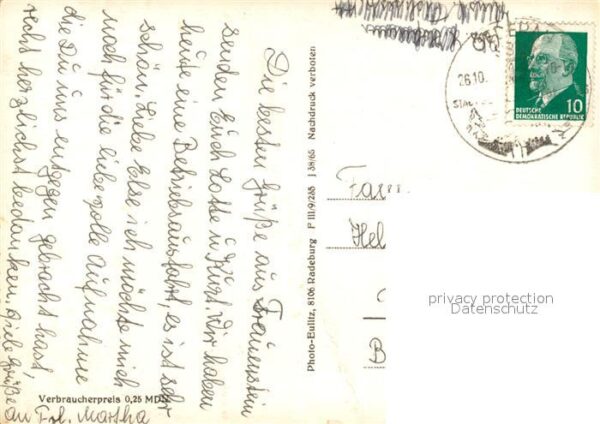 Die besten Grüße aus Frauenstein
senden Euch Lotte u. Kurt. Wir haben
heute eine Betriebsausfahrt, es ist sehr
schön. Liebe Else ich möchte mich
noch für die liebevolle Aufnahme
die Du uns entgegen gebracht hast,
recht herzlichst bedanken. Viele Grüße
an Frl. Martha
Verbraucherpreis 0,25 MDN
Photo-Eulitz, 8106 Radeburg P III/9/265 J 38/65 Nachdruck verboten
26.10.
10
DEUTSCHE
DEMOKRATISCHE REPUBLIK
Fam
Hel
B
privacy protection
Datenschutz